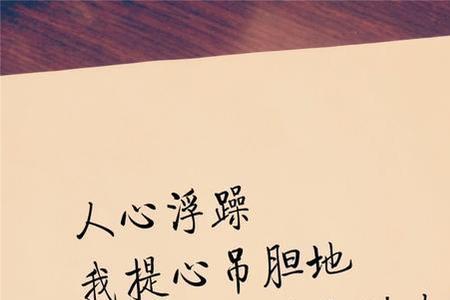 人心浮躁
我提心吊胆地